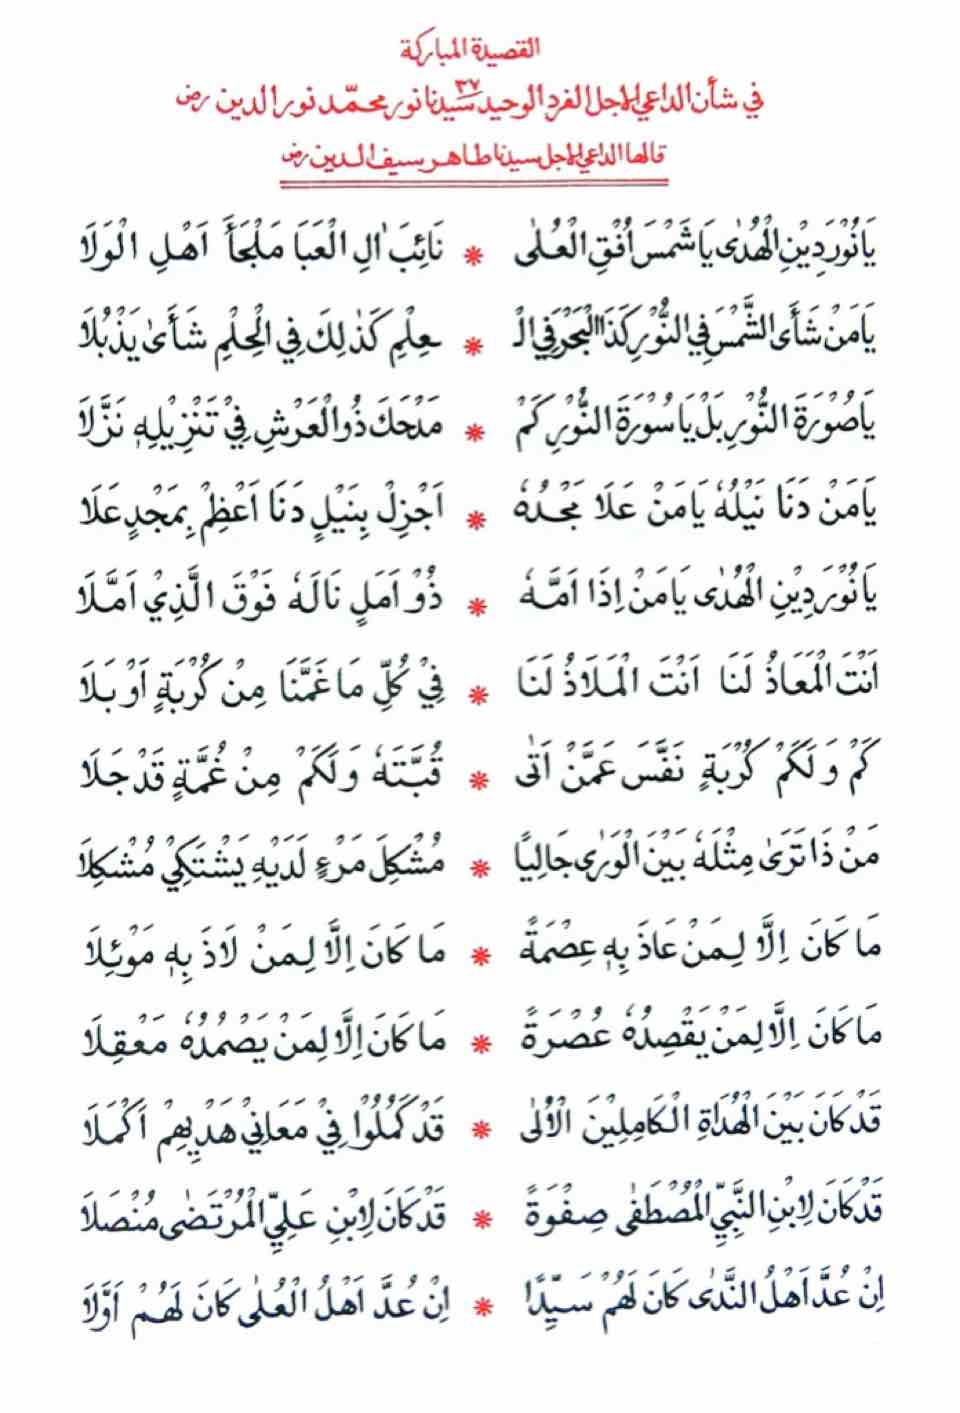 القصيدة المباركة
في شأن الداعي الاجل الفرد الوحيد ٣٧ سيدنا نور محمّد نور الدين رض
قالها الداعي الاجل سيدنا طاهر سيف الدين رض
يَا نُوْرَ دِيْنِ الْهُدٰى يَا شَمْسَ اُفْقِ الْعُلٰى * نَائِبَ اٰلِ الْعَبَا مَلْجَأَ اَهْلِ الْوَلَا
يَا مَنْ شَأَى الشَّمْسَ فِي النُّوْرِ كَذَا الْبَحْرَ فِي الْـ * ـعِلْمِ كَذٰلِكَ فِي الْحِلْمِ شَأَىٰ يَذْبُلَا
يَا صُوْرَةَ النُّوْرِ بَلْ يَا سُوْرَةَ النُّوْرِ كَمْ * مَدْحَكَ ذُو الْعَرْشِ فِيْ تَنْزِيْلِهٖ نَزَّلَا
يَا مَنْ دَنَا نَيْلُهٗ يَا مَنْ عَلَا مَجْدُهٗ * اَجْزِلْ بِنَيْلٍ دَنَا اَعْظِمْ بِمَجْدٍ عَلَا
يَا نُوْرَ دِيْنِ الْهُدٰى يَا مَنْ اِذَا اَمَّهٗ * ذُوْ اَمَلٍ نَالَهٗ فَوْقَ الَّذِيْ اَمَّلَا
اَنْتَ الْمَعَاذُ لَنَا اَنْتَ الْمَلَاذُ لَنَا * فِيْ كُلِّ مَا غَمَّنَا مِنْ كُرْبَةٍ اَوْ بَلَا
كَمْ وَلَكَمْ كُرْبَةٍ نَفَّسَ عَمَّنْ اَتٰى * قُبَّتَهٗ وَلَكَمْ مِنْ غُمَّةٍ قَدْ جَلَا
مَنْ ذَا تَرٰى مِثْلَهٗ بَيْنَ الْوَرٰى جَالِيًا * مُشْكِلَ مَرْءٍ لَدَيْهِ يَشْتَكِيْ مُشْكِلَا
مَا كَانَ اِلَّا لِمَنْ عَاذَ بِهٖ عِصْمَةً * مَا كَانَ اِلَّا لِمَنْ لَاذَ بِهٖ مَوْئِلَا
مَا كَانَ اِلَّا لِمَنْ يَقْصِدُهٗ عُصْرَةً * مَا كَانَ اِلَّا لِمَنْ يَصْمُدُهٗ مَعْقِلَا
قَدْ كَانَ بَيْنَ الْهُدَاةِ الْكَامِلِيْنَ الْاُلٰى * قَدْ كَمُلُوْا فِيْ مَعَانِيْ هَدْيِهِمْ اَكْمَلَا
قَدْ كَانَ لِابْنِ النَّبِيِّ الْمُصْطَفٰى صِفْوَةً * قَدْ كَانَ لِابْنِ عَلِيِّ الْمُرْتَضٰى مُنْصَلَا
اِنْ عُدَّ اَهْلُ النَّدٰى كَانَ لَهُمْ سَيِّدًا * اِنْ عُدَّ اَهْلُ الْعُلٰى كَانَ لَهُمْ اَوَّلَا